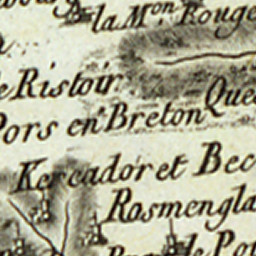 la M.on Rouge
Ristoir
Pors en Breton
Kercador et Bec
Rosmengla